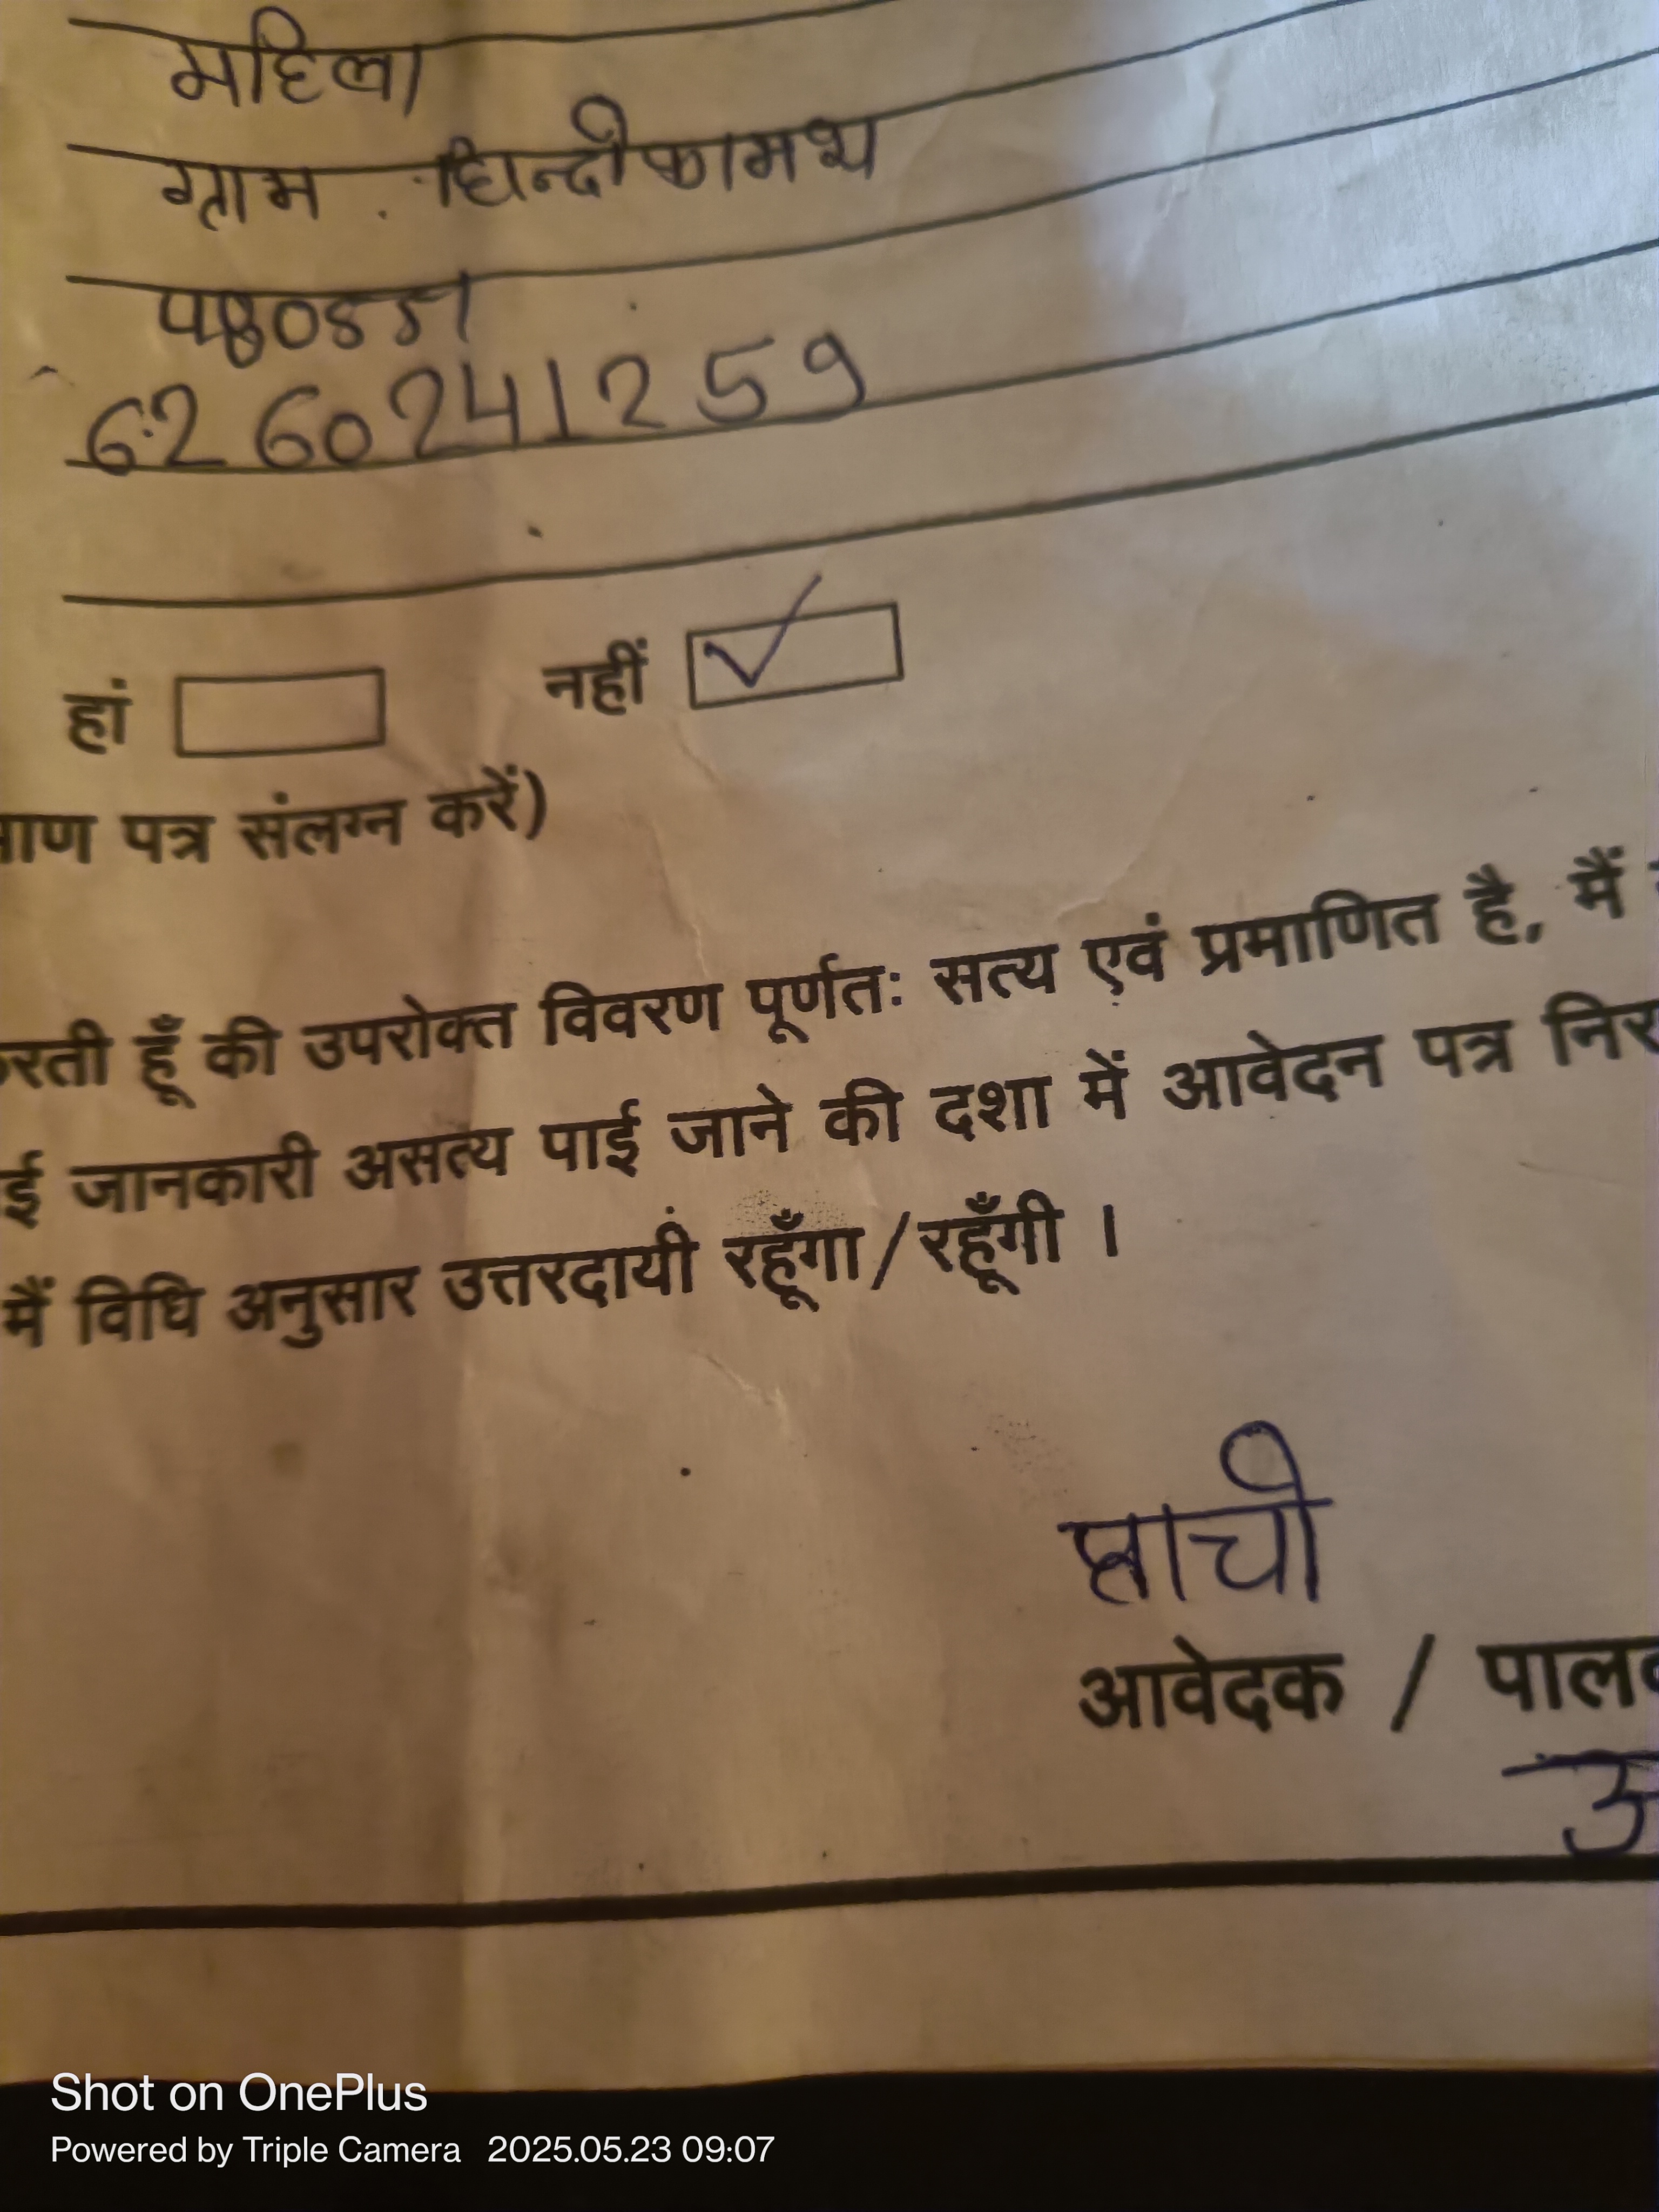 महिला
ग्राम
6260241259
हां नहीं
पत्र संलग्न करें)
हूँ की उपरोक्त विवरण पूर्णतः सत्य एवं प्रमाणित है, मैं
जानकारी असत्य पाई जाने की दशा में आवेदन पत्र
मैं विधि अनुसार उत्तरदायी रहूँगा/रहूँगी ।
प्राची
आवेदक /
Shot on OnePlus
Powered by Triple Camera 2025.05.23 09:07